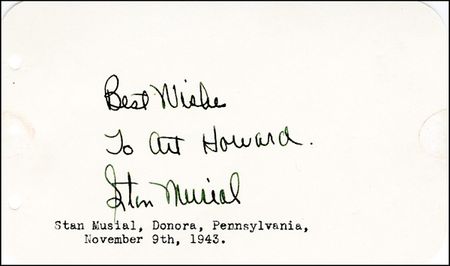 Best Wishes
To Art Howard.
Stan Musial
Stan Musial, Donora, Pennsylvania,
November 9th, 1943.